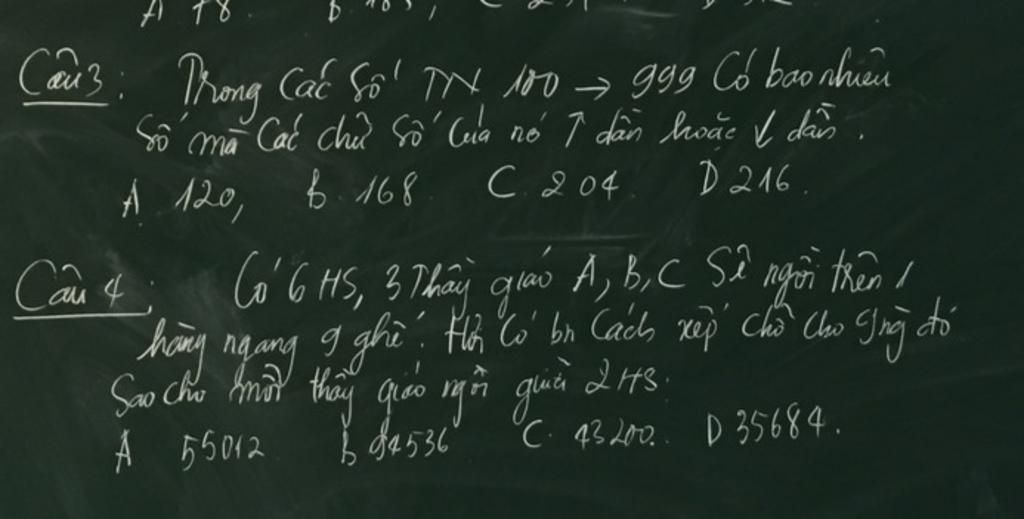 A 78. B.
Câu 3: Trong các số TN 100 → 999 Có bao nhiêu
số mà Các chữ số của nó ↑ dần hoặc ↓ dần.
A 120, B. 168 C. 204. D 216.
Câu 4: Có 6 HS, 3 Thầy giáo A, B, C Sẽ ngồi trên 1
hàng ngang 9 ghế. Hỏi Có bn Cách xếp chỗ cho 9ng đó
Sao cho mỗi thầy giáo ngồi giữa 2 HS.
A 55012 B 94536 C. 43200. D 35684.